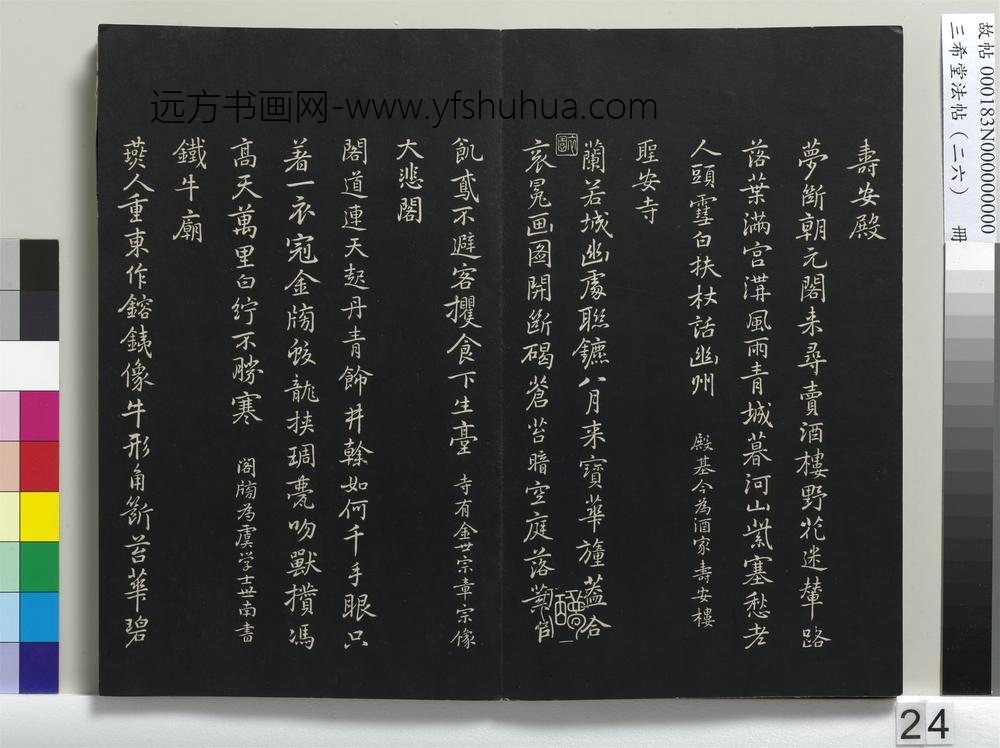 壽安殿
夢斷朝元閣来尋賣酒樓野花迷輦路
落葉滿宮溝風雨青城暮河山紫塞愁老
人頭雪白扶杖話幽州 殿基今為酒家壽安樓
聖安寺
蘭若城幽處聯鑣八月来寶華旛蓋合
衮冕画圖開斷碣蒼苔暗空庭落葉
飢鳶不避客攫食下生臺 寺有金世宗章宗像
大悲閣
閣道連天起丹青飾井幹如何千手眼只
著一衣冠金牓蛟龍挾琱甍吻獸攢馮
高天萬里白紵不勝寒 閣牓為虞学士世南書
鐵牛廟
燕人重東作鎔鐵像牛形角斷苔華碧
远方书画网-www.yfshuhua.com
故帖000183N000000000
三希堂法帖(二六) 冊
24